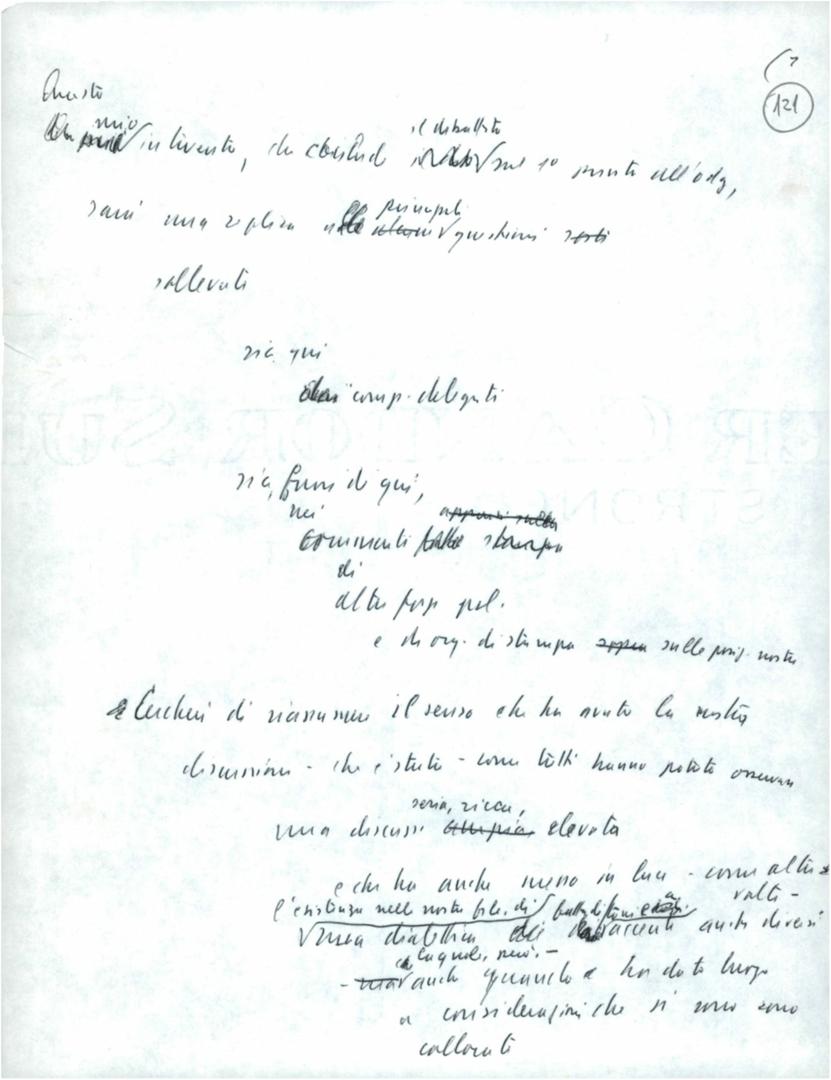 121
Questo
mio
il dibattito
intervento, che conclude sul 1° punto all'odg,
sarà una replica alle
principali
questioni
sollevate
sia qui
dai comp. delegati
sia, fuori di qui,
nei
commenti stampa
di
altre forze pol.
e di org. di stampa sulle posiz. nostre
Cercherò di riassumere il senso che ha avuto la nostra
discussione - che è stata - come tutti hanno potuto osservare
seria, ricca,
una discuss. ampia elevata
e che ha anche messo in luce - come altre
volte -
l'esistenza nelle nostre file, di
una dialettica di accenti anche diversi
la quale, però, -
- anche quando ha dato luogo
a considerazioni che si sono
collocate